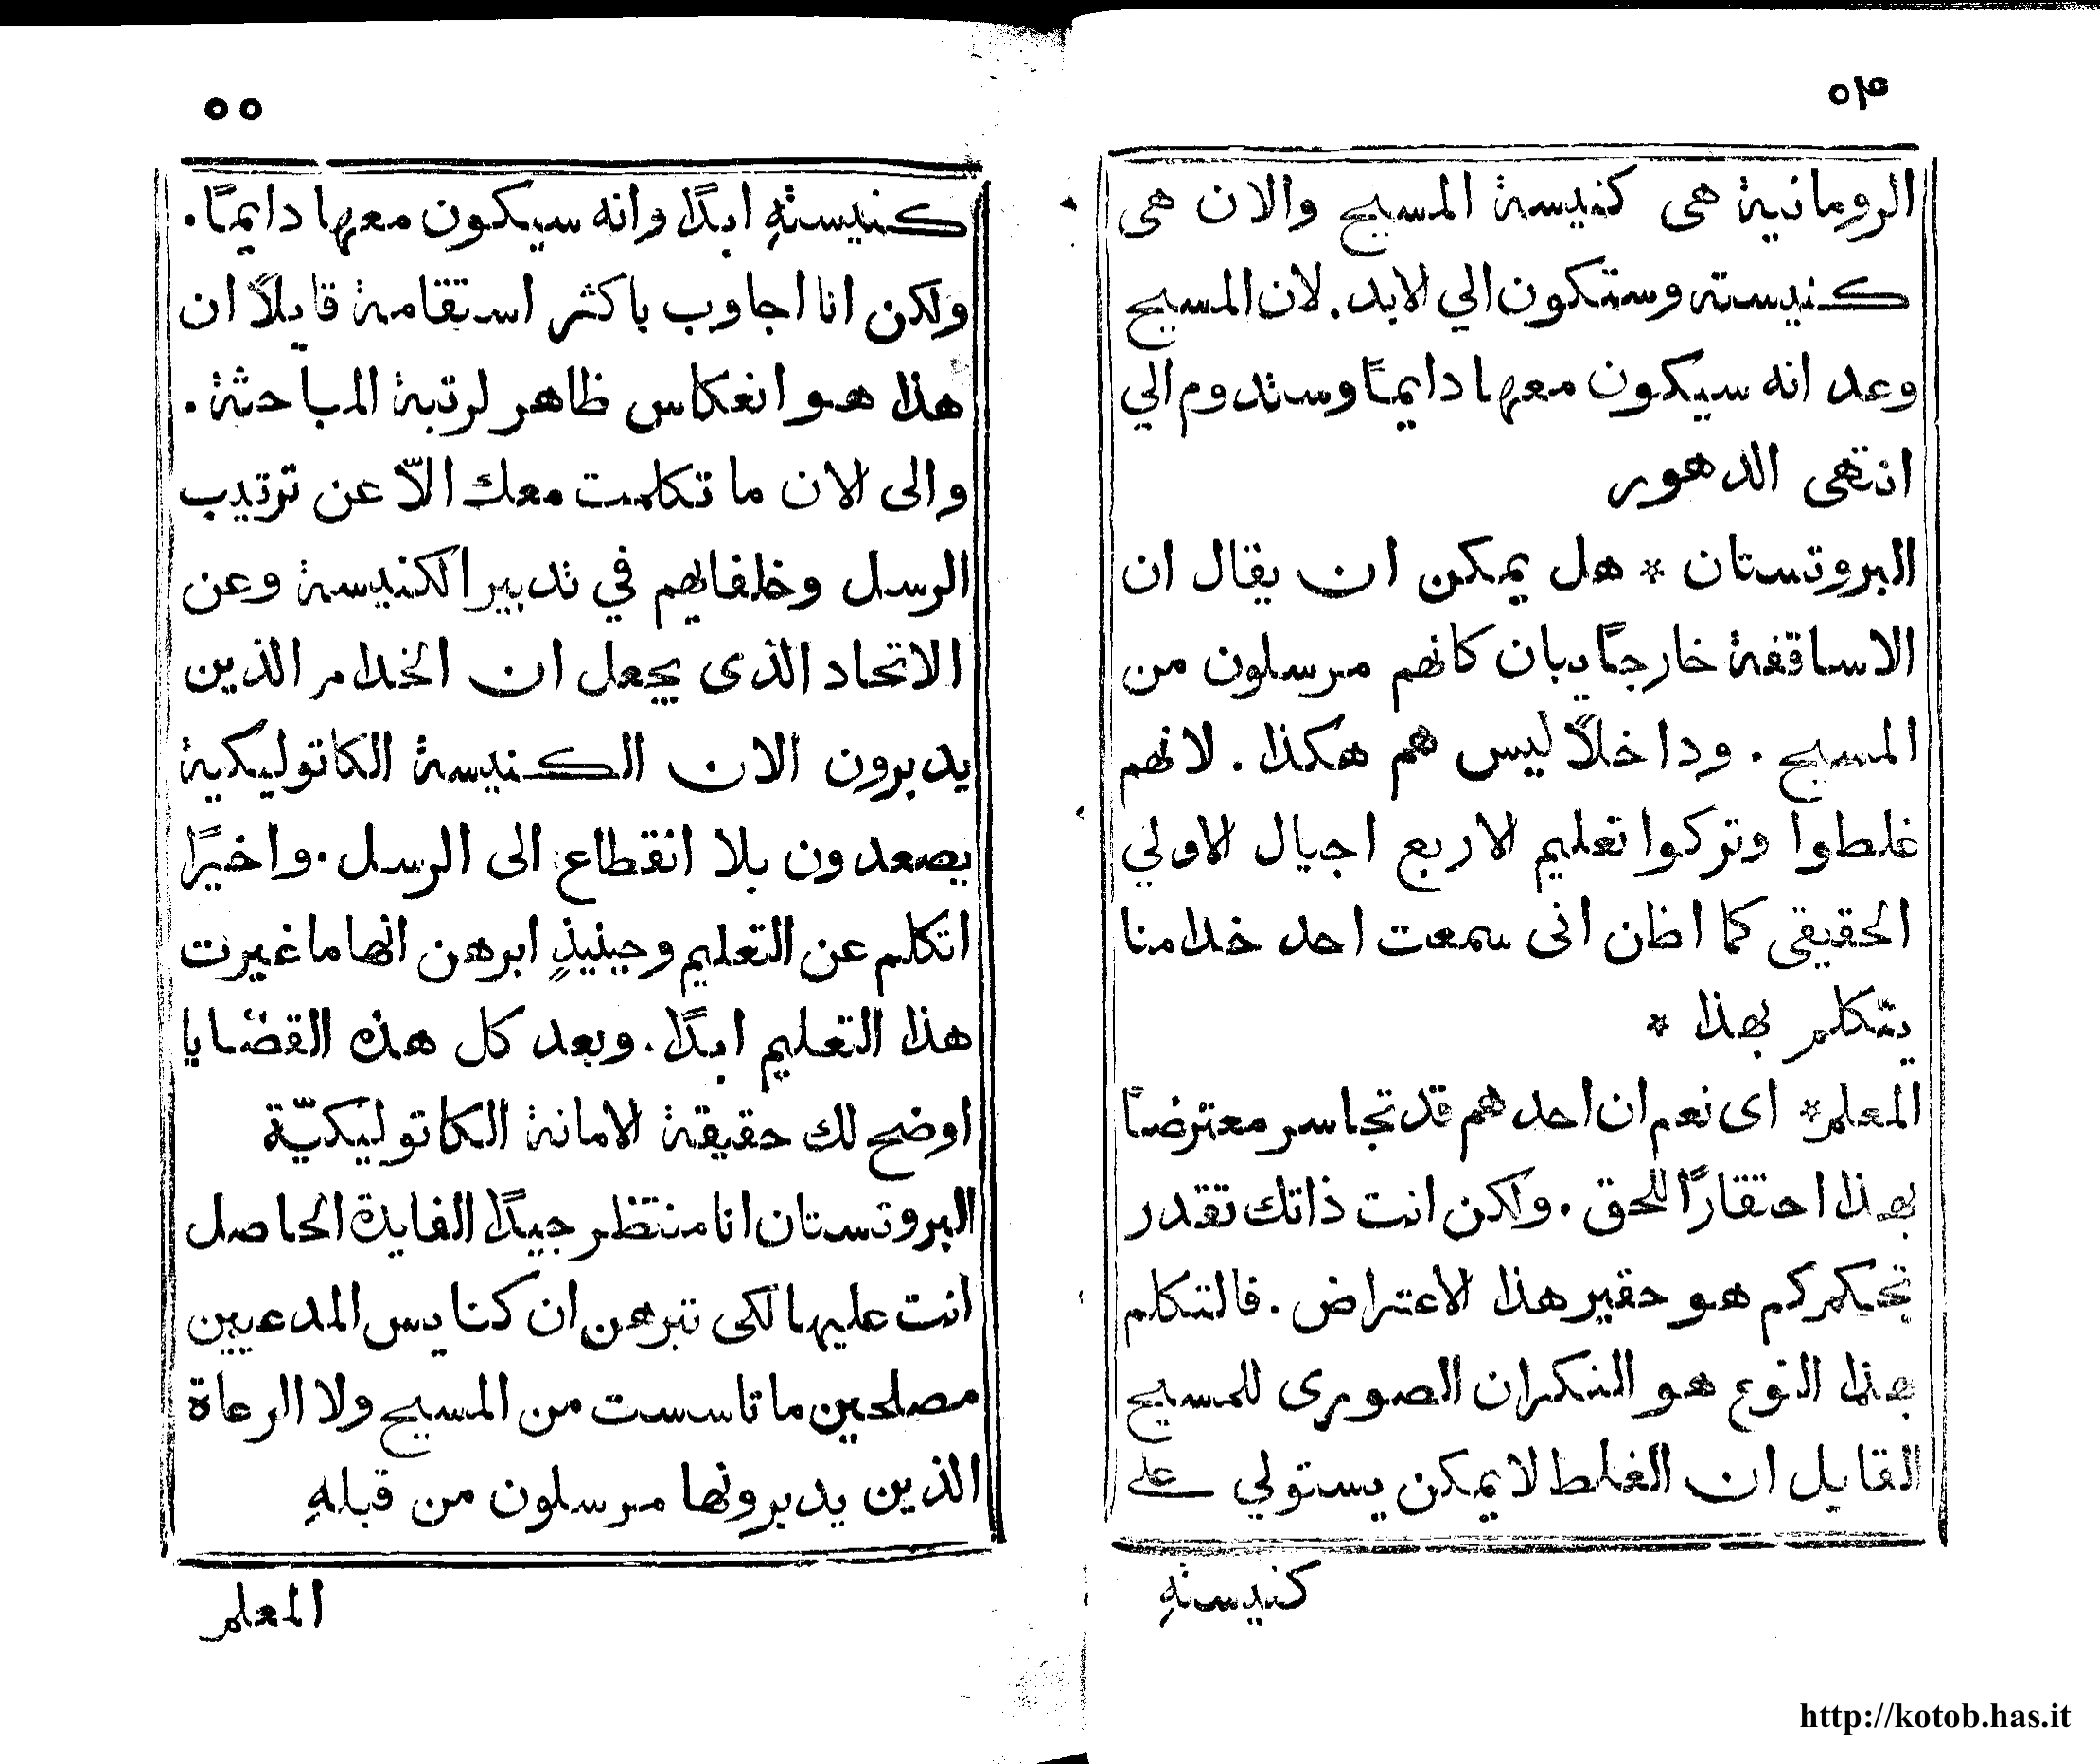 ٥٤
الرومانية هى كنيسة المسيح والان هى
كنيسته وستكون الي الابد. لان المسيح
وعد انه سيكون معها دايمًا وستدوم الي
انتهى الدهور
البروتستان * هل يمكن ان يقال ان
الاساقفة خارجًا يبان كانهم مرسلون من
المسيح . وداخلًا ليس هم هكذا . لانهم
غلطوا وتركوا تعليم الاربع اجيال الاولي
الحقيقى كما اظن انى سمعت احد خدامنا
يتكلم بهذا *
المعلم * اى نعم ان احدهم قد تجاسر معترضًا
بهذا احتقارًا للحق . ولكن انت ذاتك تقدر
تحكم كم هو حقير هذا الاعتراض . فالتكلم
بهذا النوع هو النكران الصورى للمسيح
القايل ان الغلط لا يمكن يستولي على
كنيستهِ
٥٥
كنيستهِ ابدًا وانه سيكون معها دايمًا .
ولكن انا اجاوب باكثر استقامة قايلًا ان
هذا هو انعكاس ظاهر لرتبة المباحثة .
والى الان ما تكلمت معك الّا عن ترتيب
الرسل وخلفايهم في تدبير الكنيسة وعن
الاتحاد الذى يجعل ان الخدام الذين
يدبرون الان الكنيسة الكاتوليكية
يصعدون بلا انقطاع الى الرسل . واخيرًا
اتكلم عن التعليم وحينيذٍ ابرهن انها ما غيرت
هذا التعليم ابدًا . وبعد كل هذه القضايا
اوضح لك حقيقة الامانة الكاتوليكيّة
البروتستان انا منتظر جيدًا الفايدة الحاصل
انت عليها لكى تبرهن ان كنايس المدعيين
مصلحين ما تاسست من المسيح ولا الرعاة
الذين يدبرونها مرسلون من قبلهِ
المعلم
http://kotob.has.it